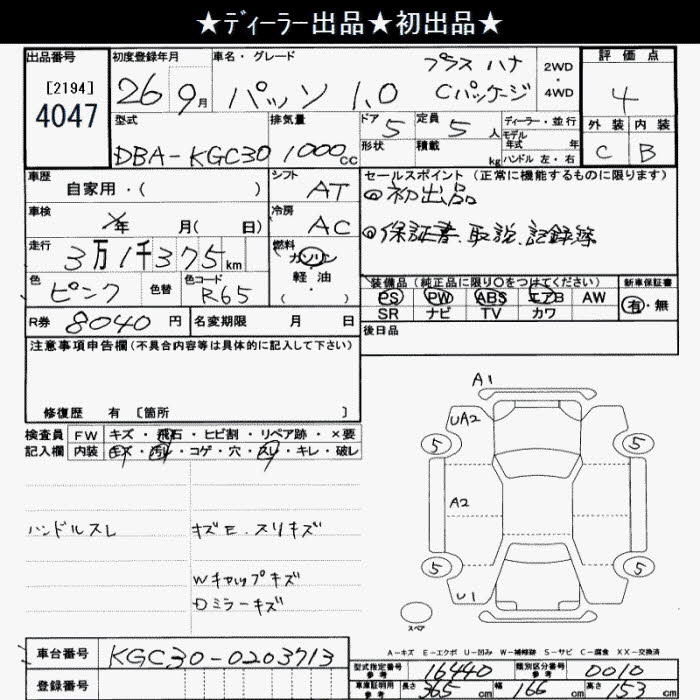 ★ディーラー出品★初出品★
出品番号
[2194]
4047
初度登録年月
26 9月
車名・グレード
パッソ 1.0 プラス ハナ Cパッケージ
2WD
・
4WD
評価点
4
外装 内装
C B
型式
DBA-KGC30
排気量
1000cc
ドア 5
形状
定員 5人
積載 kg
ディーラー・並行
モデル年式 年
ハンドル 左・右
車歴
自家用・( )
シフト
AT
セールスポイント(正常に機能するものに限ります)
◎初出品
◎保証書、取説、記録簿
車検
年 月( 日)
冷房
AC
走行
3万1千375km
燃料
ガソリン
軽・油
・( )
色
ピンク
色替
色コード
R65
装備品(純正品に限り○をつけてください)
PS PW ABS エアB AW
SR ナビ TV カワ
新車保証書
有・無
R券 8040円
名変期限 月 日
後日品
注意事項申告欄(不具合内容等は具体的に記入して下さい)
修復歴 有 〔箇所 〕
検査員記入欄
FW キズ・飛石・ヒビ割・リペア跡・×要
内装 キズ・汚れ・コゲ・穴・スレ・キレ・破レ
ハンドルスレ
キズE.スリキズ
Wキャップキズ
Dミラーキズ
A1
UA2
5 5
A2
5 5
U1
スペア
A-キズ E-エクボ U-凹み W-補修跡 S-サビ C-腐食 XX-交換済
車台番号
KGC30-0203713
登録番号
型式指定番号 参考 16440
類別区分番号 参考 0010
車庫証明用 参考 長さ 365cm 幅 166cm 高さ 153cm